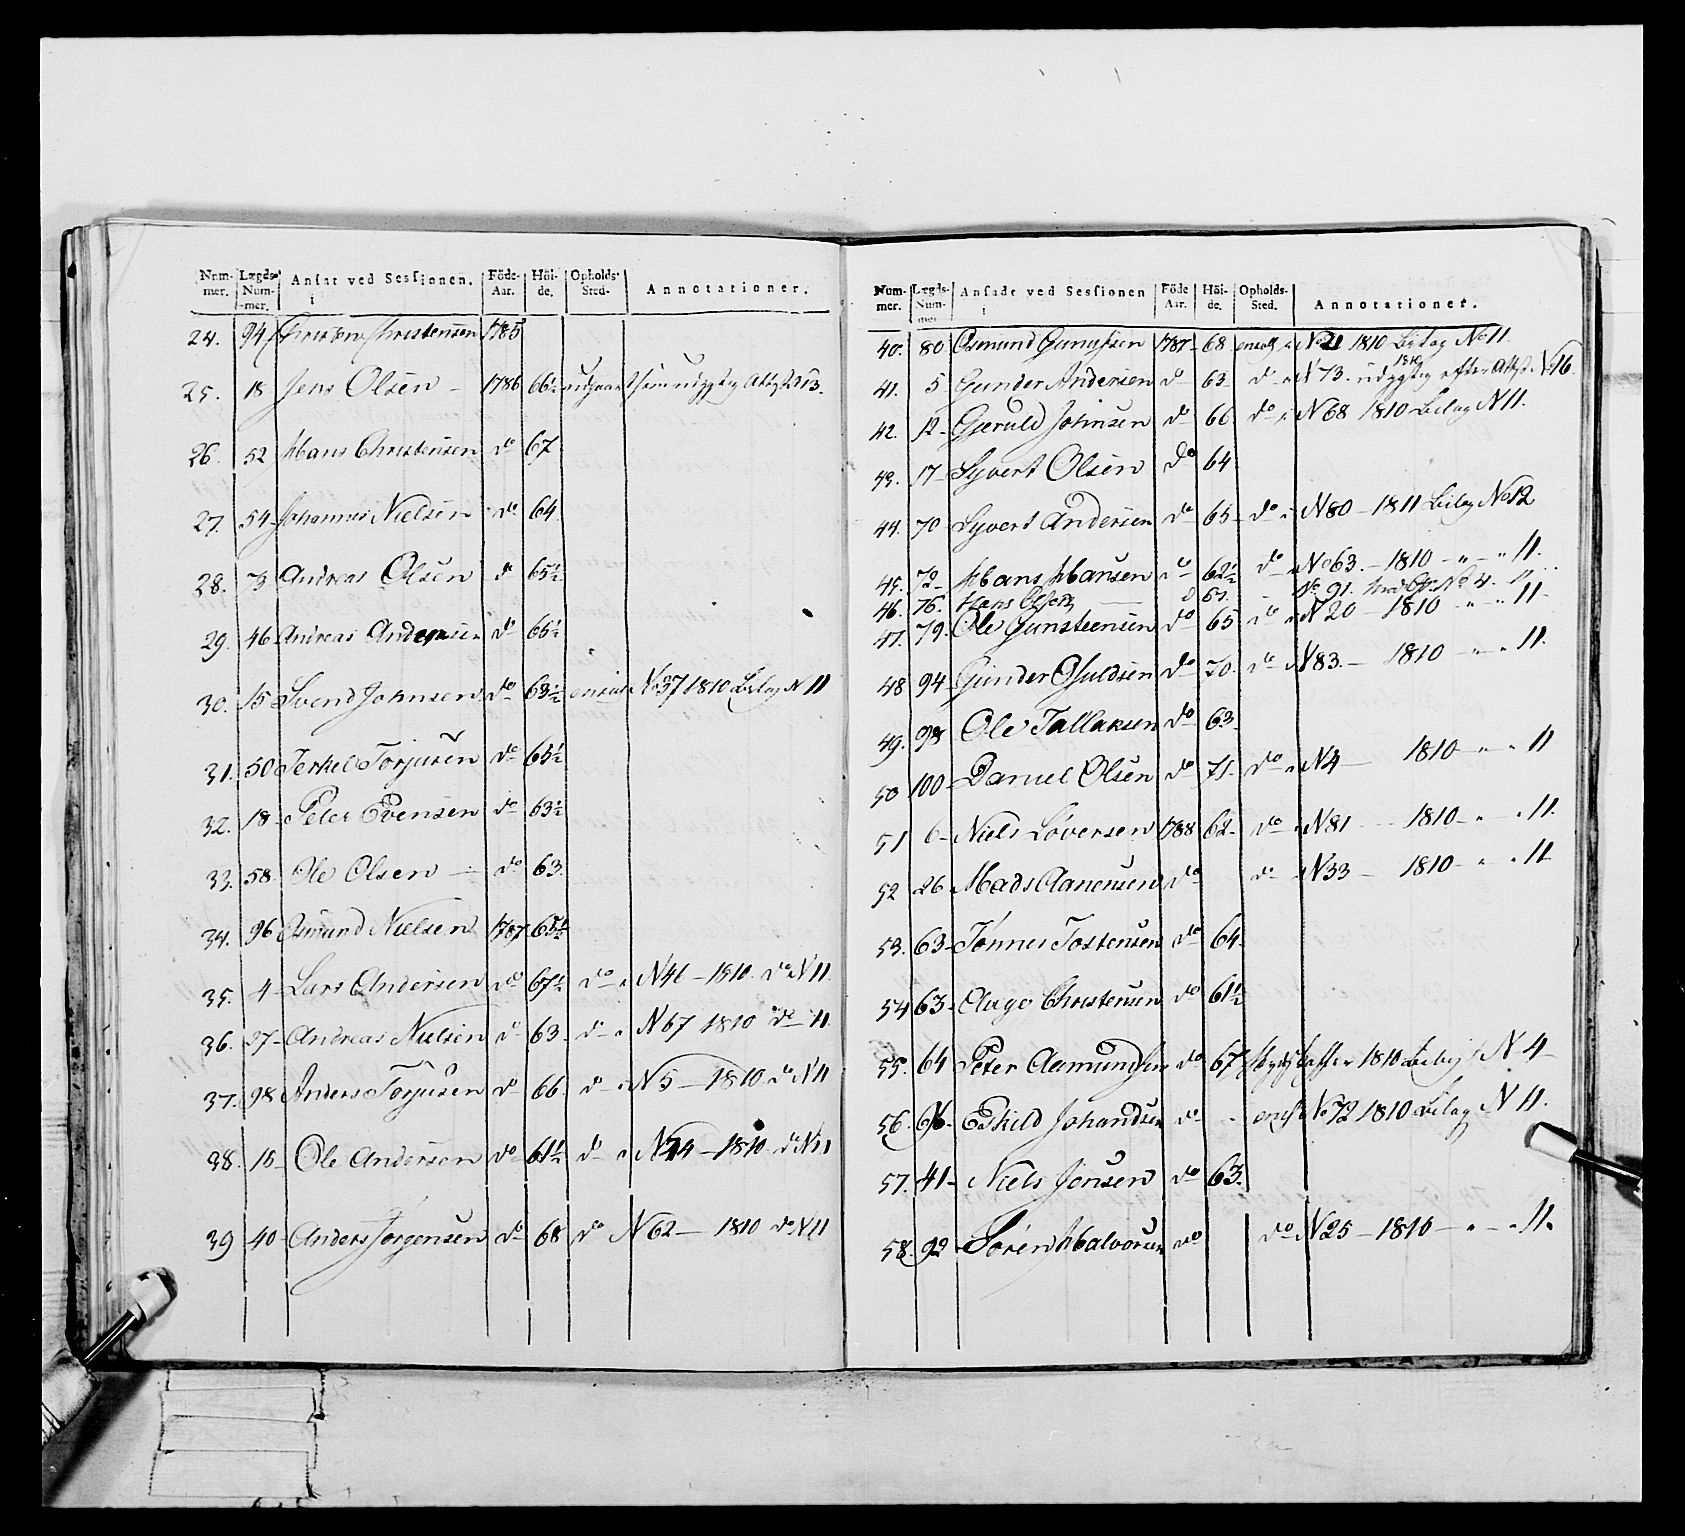 Num- Lægds- Ansat ved Sessionen. Föde- Höi- Opholds- Annotationer.
mer. Num- Aar. de. Sted-
mer.
24. 94 Christen Christensen 1785
25. 18 Jens Olsen – 1786 66½ udgaaet som udygtig Attest 13.
26. 52 Hans Christensen do 67
27. 54 Johannes Nielsen do 64
28. 73 Andreas Olsen do 65½
29. 46 Andreas Andersen do 66½
30. 15 Svend Johnsen do 63½ ansat No 37 1810 Bilag N 11
31. 50 Terkel Torjusen do 65½
32. 18 Peter Evensen do 63½
33. 58 Ole Olsen – do 63
34. 96 Osmund Nielsen 1787 65½
35. 4 Lars Andersen do 67½ do N 46 – 1810 do N 11
36. 37 Andreas Nielsen do 63 do N 67 1810 do 11
37. 98 Anders Torjusen do 66 do N 5 – 1810 do N 11
38. 15 Ole Andersen do 61½ do N 54 – 1810 do N 11
39 40 Anders Jørgensen do 68 do N 62 – 1810 do N 11
Num- Lægds- Ansadt ved Sessionen Föde Höi- Opholds- Annotationer.
mer. Num- Aar. de. Sted.
mer
40. 80 Osmund Gunufsen 1787 68 ansatt No 21 1810 Bilag No 11.
41. 5 Gunder Andersen do 63 do N 73. 1810 udygtig efter Attst. N 16
42. 12 Gjeruld Johnsen do 66 do N 68 1810 Bilag N 11.
43. 17 Syvert Olsen do 64
44. 70 Syvert Andersen do 65 do N 80 – 1811 Bilag No 12
45. 72 Hans Hansen do 62½ do No 63. – 1810 – " – " 11.
46. 76. Hans Olsen No 91.
47. 79. Ole Gunsteensen do 65 do N 20 – 1810 " – " 11
48 94 Gunder Osuldsen do 70. do N 83. – 1810 – " – " 11.
49. 98 Ole Tallaksen do 63
50 100 Daniel Olsen do 71. do N 4 – 1810 – " " 11
51 6 Niels Løversen 1788 62 do N 81 – 1810 – " – " 11.
52 26 Mads Aanensen do do N 33 – 1810 – " " 11
53. 63 Tønnes Tostensen do 64
54 63 Aage Christensen do 61½
55. 64 Peter Aamundsen do 67 1810 Bilag N 4
56. 96. Eskild Johandsen do " ansat No 72 1810 Bilag N 11.
57. 41 Niels Jensen do 63.
58. 92 Søren Halvorsen do do N 25 – 1810 – " – " 11.